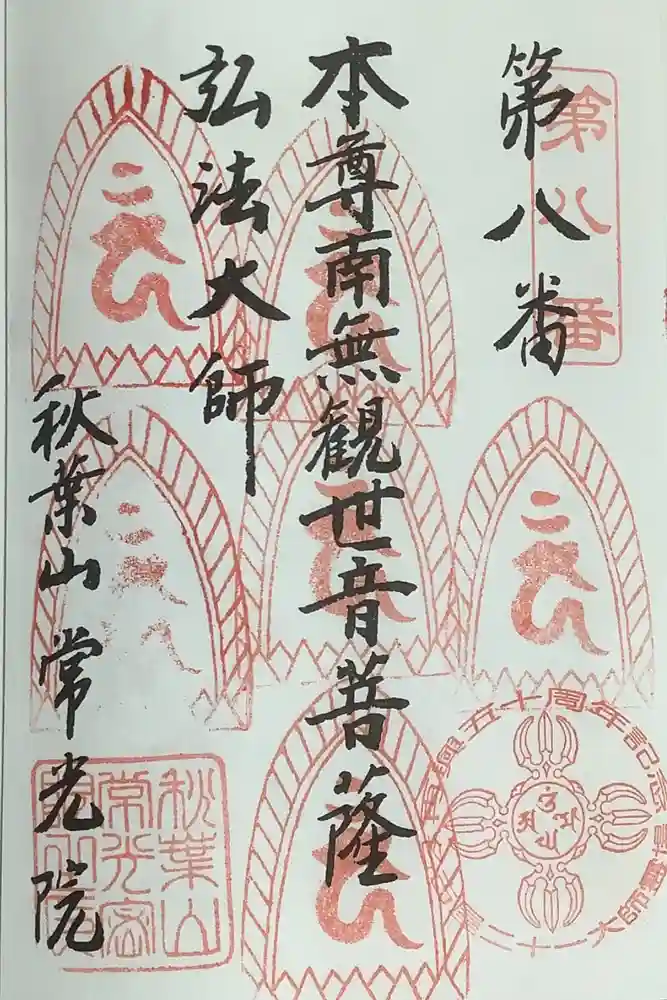 第八番
第八番
本尊南無観世音菩薩
弘法大師
秋葉山常光院
秋葉山
五十周年記念
二十一大師霊